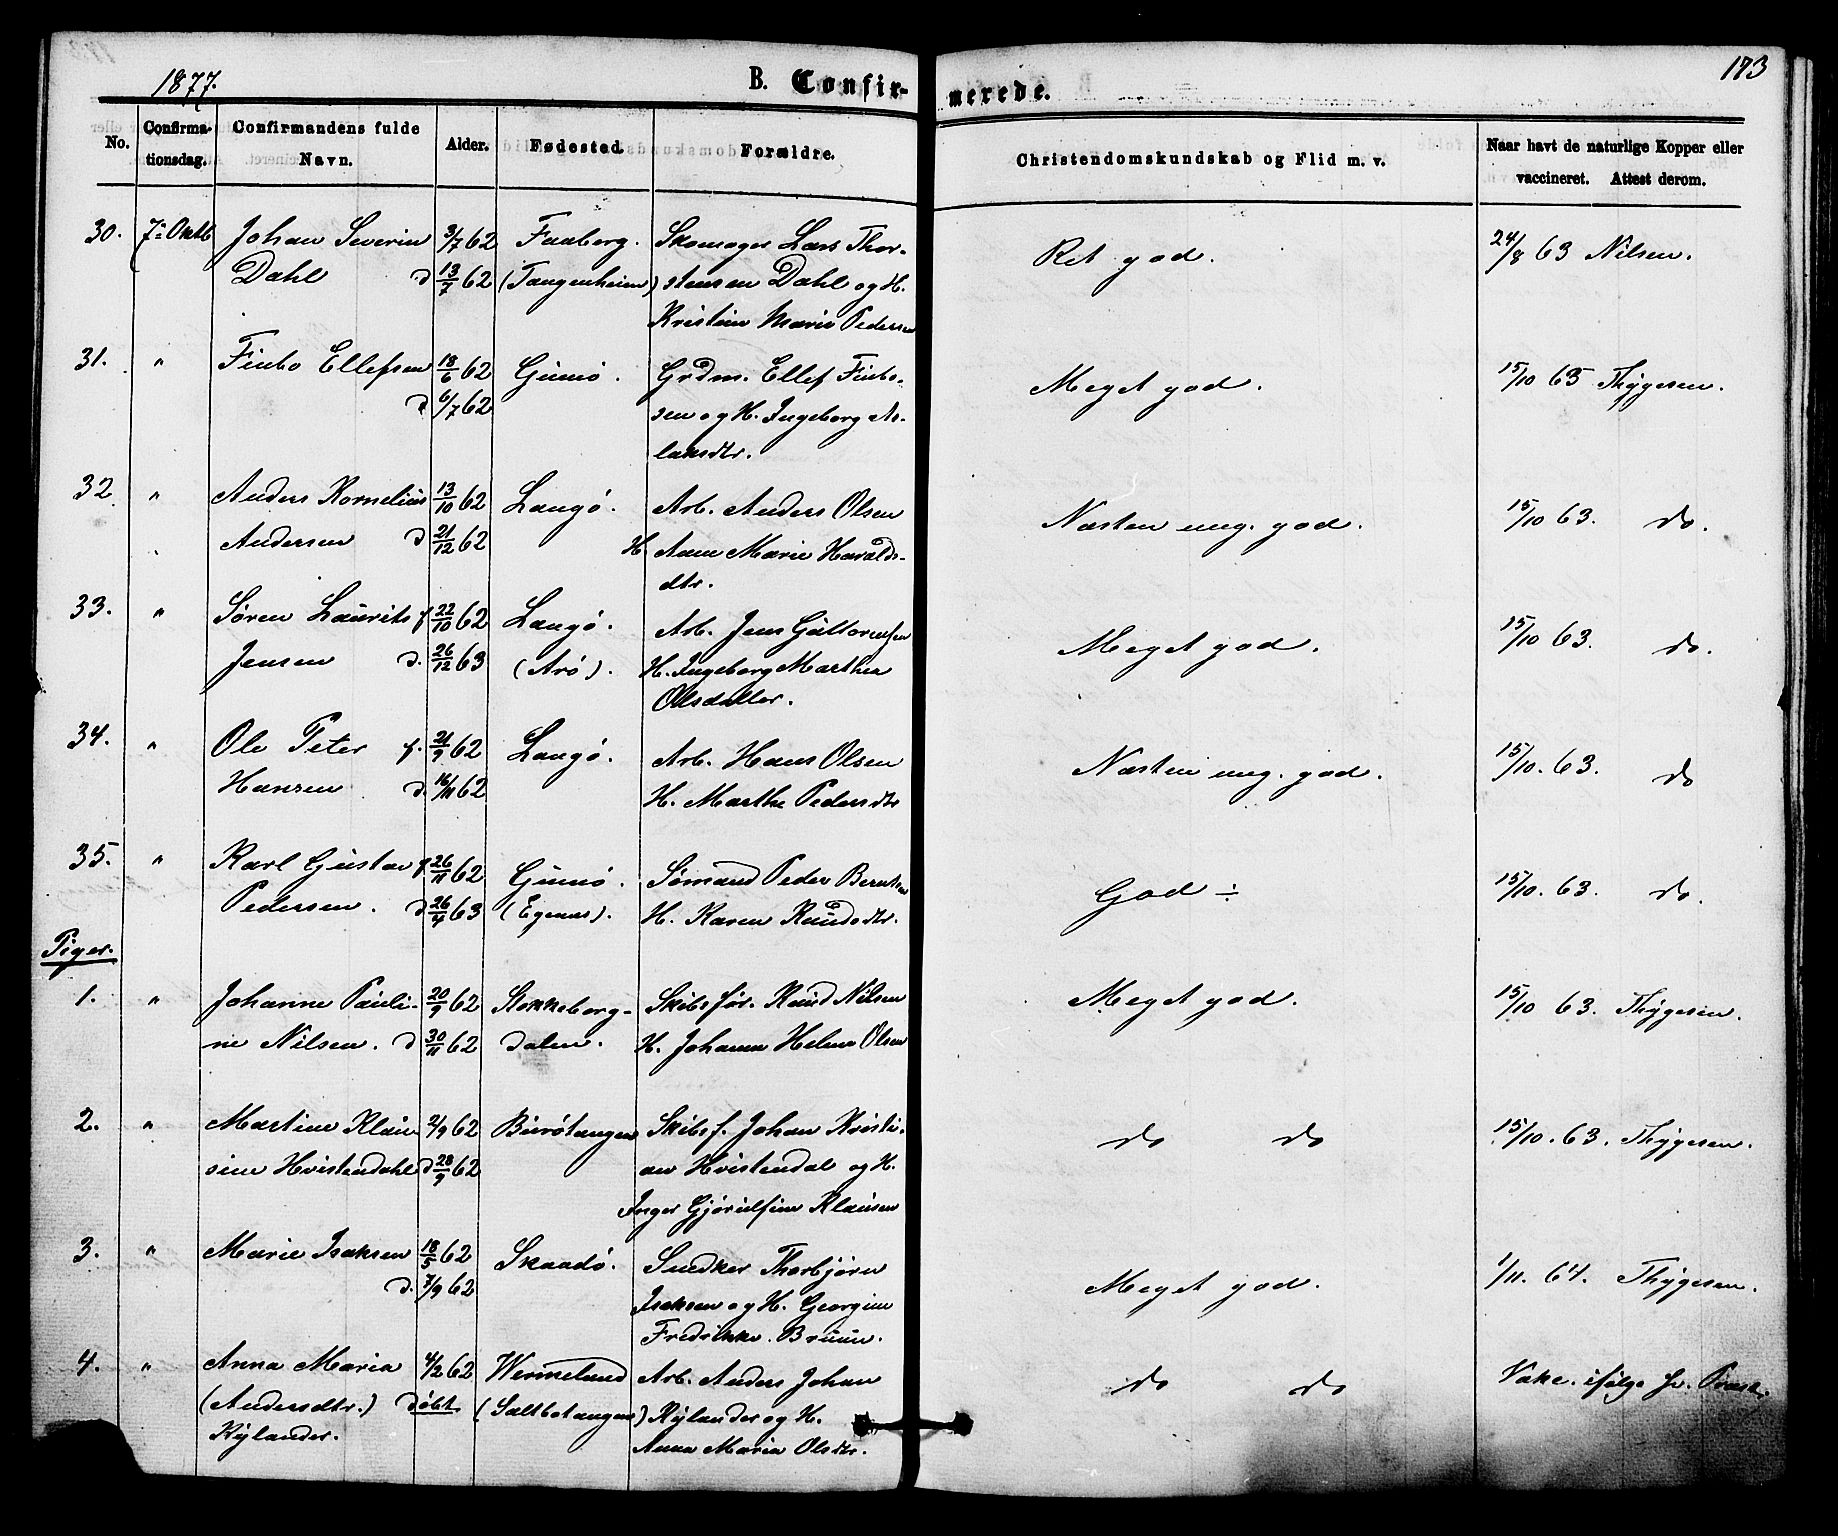 1877. B. Confir- merede. 173
No. Confirma-tionsdag. Confirmandens fulde Navn. Alder. Fødested. Forældre. Christendomskundskab og Flid m. v. Naar havt de naturlige Kopper eller vaccineret. Attest derom.
30. 7de Oktb Johan Severin 3/7 62 Faaberg. Skomager Lars Thor- Ret god. 24/8 63 Nilsen.
Dahl d 13/7 62 (Tangenheim) stensen Dahl og H.
Kristine Marie Pedersen
31. " Finbo Ellefsen 18/6 62 Gumø. Grdm. Ellef Finbo- Meget god. 15/10 63 Thygesen.
d 6/7 62 sen og H. Ingeborg As-
laksdtr.
32 " Anders Kornelius 13/10 62 Langø. Arb. Anders Olsen Næsten meg. god. 15/10 63. do.
" Andersen d 21/12 62 H. Anne Marie Haralds-
dtr.
33. " Søren Laurits f 22/10 62 Langø. Arb. Jens Guttormsen Meget god. 15/10 63. do.
Jensen d. 26/12 63 (Arø). H. Ingeborg Marthea
Olsdatter.
34. " Ole Peter f. 21/9 62 Langø. Arb. Hans Olsen Næsten meg. god. 15/10. 63. do
Hansen d. 16/11 62 H. Marthe Pedersdtr
35. " Karl Gustav f 26/11 62 Gumø. Sømand Peder Berntsen God ÷ 15/10. 63. do.
Pedersen. d 26/4 63 (Egenæs). H. Karen Knudsdtr.
Piger.
1. " Johanne Pauli- 20/9 62 Stokkeborg- Skibsfør. Knud Nilsen Meget god. 15/10 63. Thygesen.
ne Nilsen. d 30/11 62 dalen. H. Johanne Helene Olsen
2. " Martine Klau- 2/9 62 Buerøtangen Skibsf. Johan Kristi- do do 15/10. 63. Thygesen.
sine Hvistendahl d 28/9 62 an Hvistendal og H.
Inger Gjørulfine Klausen
3. " Marie Isaksen 18/5 62 Skaadø. Snedker Thorbjørn Meget god. 1/11. 64. Thygesen.
d. 7/9 62 Isaksen og H. Georgine
Fredrikke Bruun.
4. " Anna Maria 4/2 62 Wermeland Arb. Anders Johan do do Vakc. ifølge sv. Præst.
(Andersdtr.) døbt (Saltbotangen) Rylander og H.
Rylander. Anna Maria Olsdtr.